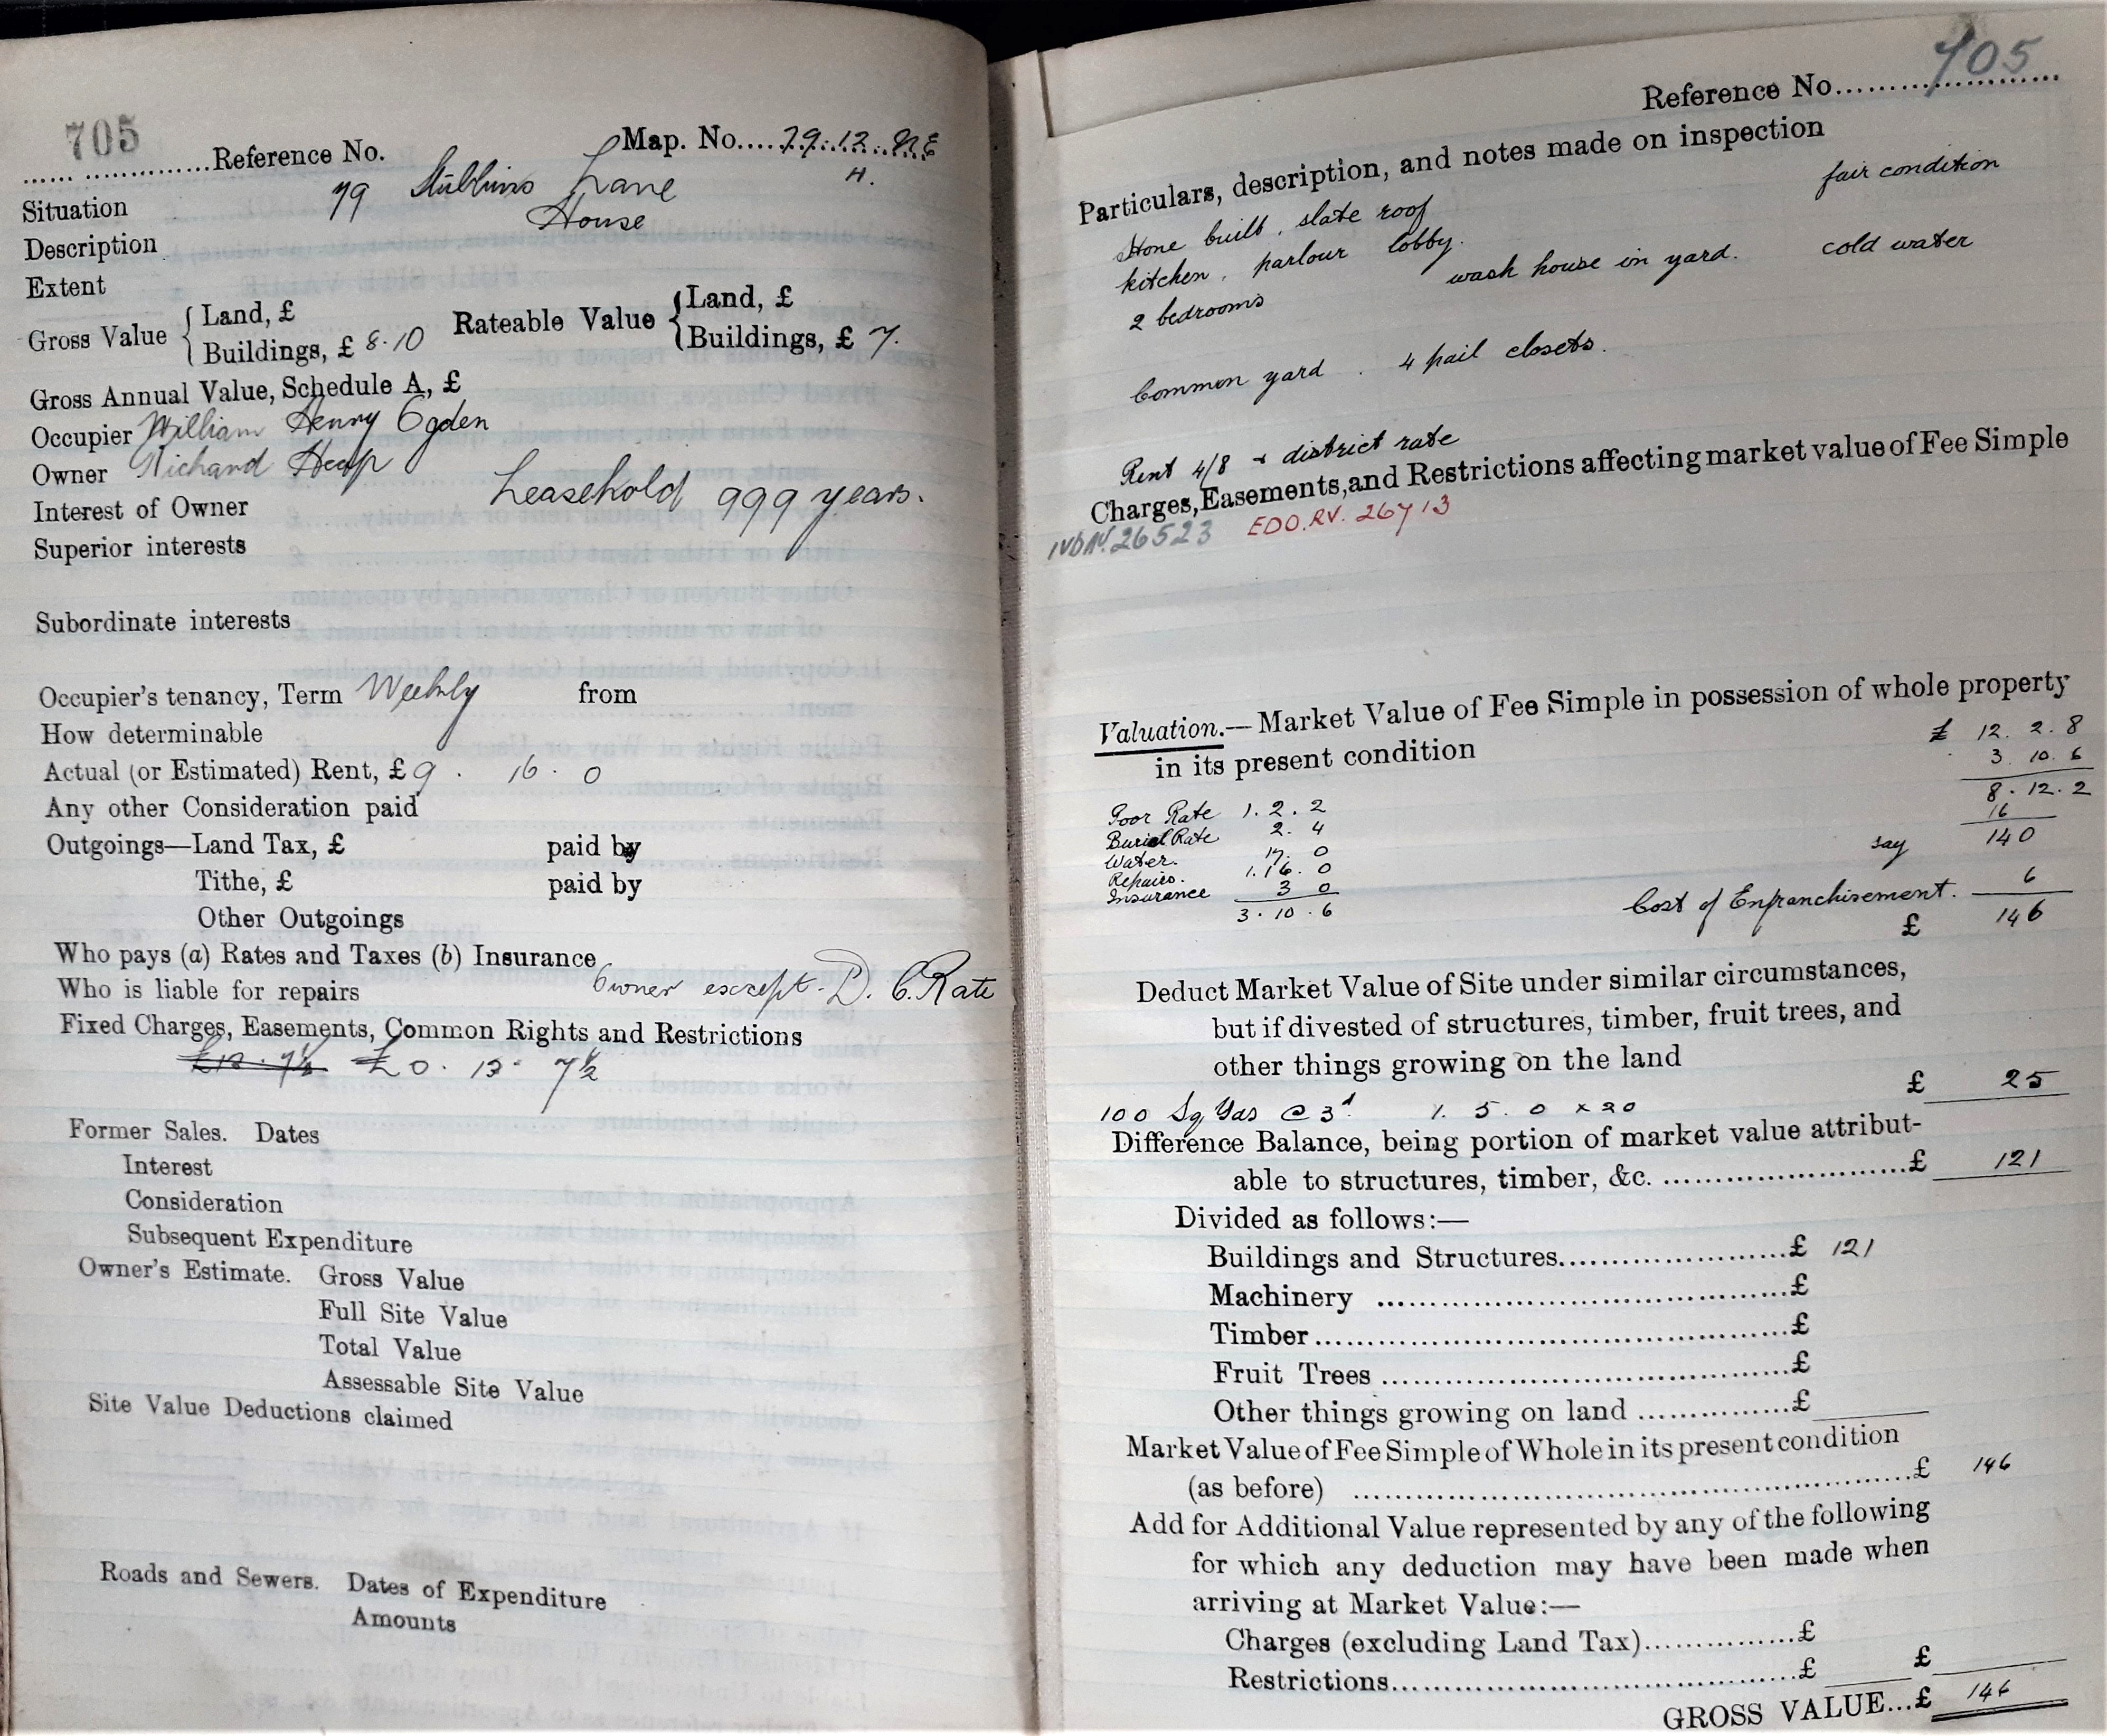 705
Reference No.
Map. No. 79.12. N.E
4.
Situation 79 Stubbins Lane
Description House
Extent
Gross Value { Land, £
Buildings, £ 8.10
Rateable Value { Land, £
Buildings, £ 7.
Gross Annual Value, Schedule A, £
Occupier William Henry Ogden
Owner Richard Heap
Interest of Owner Leasehold 999 years.
Superior interests
Subordinate interests
Occupier's tenancy, Term Weekly from
How determinable
Actual (or Estimated) Rent, £ 9. 16. 0
Any other Consideration paid
Outgoings—Land Tax, £ paid by
Tithe, £ paid by
Other Outgoings
Who pays (a) Rates and Taxes (b) Insurance
Who is liable for repairs Owner except D. C. Rate
Fixed Charges, Easements, Common Rights and Restrictions
£12. 7½ £0. 12. 7½
Former Sales. Dates
Interest
Consideration
Subsequent Expenditure
Owner's Estimate. Gross Value
Full Site Value
Total Value
Assessable Site Value
Site Value Deductions claimed
Roads and Sewers. Dates of Expenditure
Amounts
Reference No. 705
Particulars, description, and notes made on inspection
Stone built, slate roof fair condition
kitchen, parlour lobby.
2 bedrooms wash house in yard. cold water
Common yard. 4 pail closets.
Rent 4/8 + district rate
Charges, Easements, and Restrictions affecting market value of Fee Simple
26523 EDO.RV. 26713
Valuation.— Market Value of Fee Simple in possession of whole property
in its present condition
£ 12. 2. 8
3. 10. 6
8. 12. 2
16
say 140
Cost of Enfranchisement. 6
£ 146
Poor Rate 1. 2. 2
Burial Rate 2. 4
Water. 7. 0
Repairs. 1. 16. 0
Insurance 3 0
3. 10. 6
Deduct Market Value of Site under similar circumstances,
but if divested of structures, timber, fruit trees, and
other things growing on the land
£ 25
100 Sq Yds @ 3d. 1. 5. 0 x 20
Difference Balance, being portion of market value attribut-
able to structures, timber, &c. £ 121
Divided as follows:—
Buildings and Structures £ 121
Machinery £
Timber £
Fruit Trees £
Other things growing on land £
Market Value of Fee Simple of Whole in its present condition
(as before) £ 146
Add for Additional Value represented by any of the following
for which any deduction may have been made when
arriving at Market Value:—
Charges (excluding Land Tax) £
Restrictions £ £
GROSS VALUE...£ 146